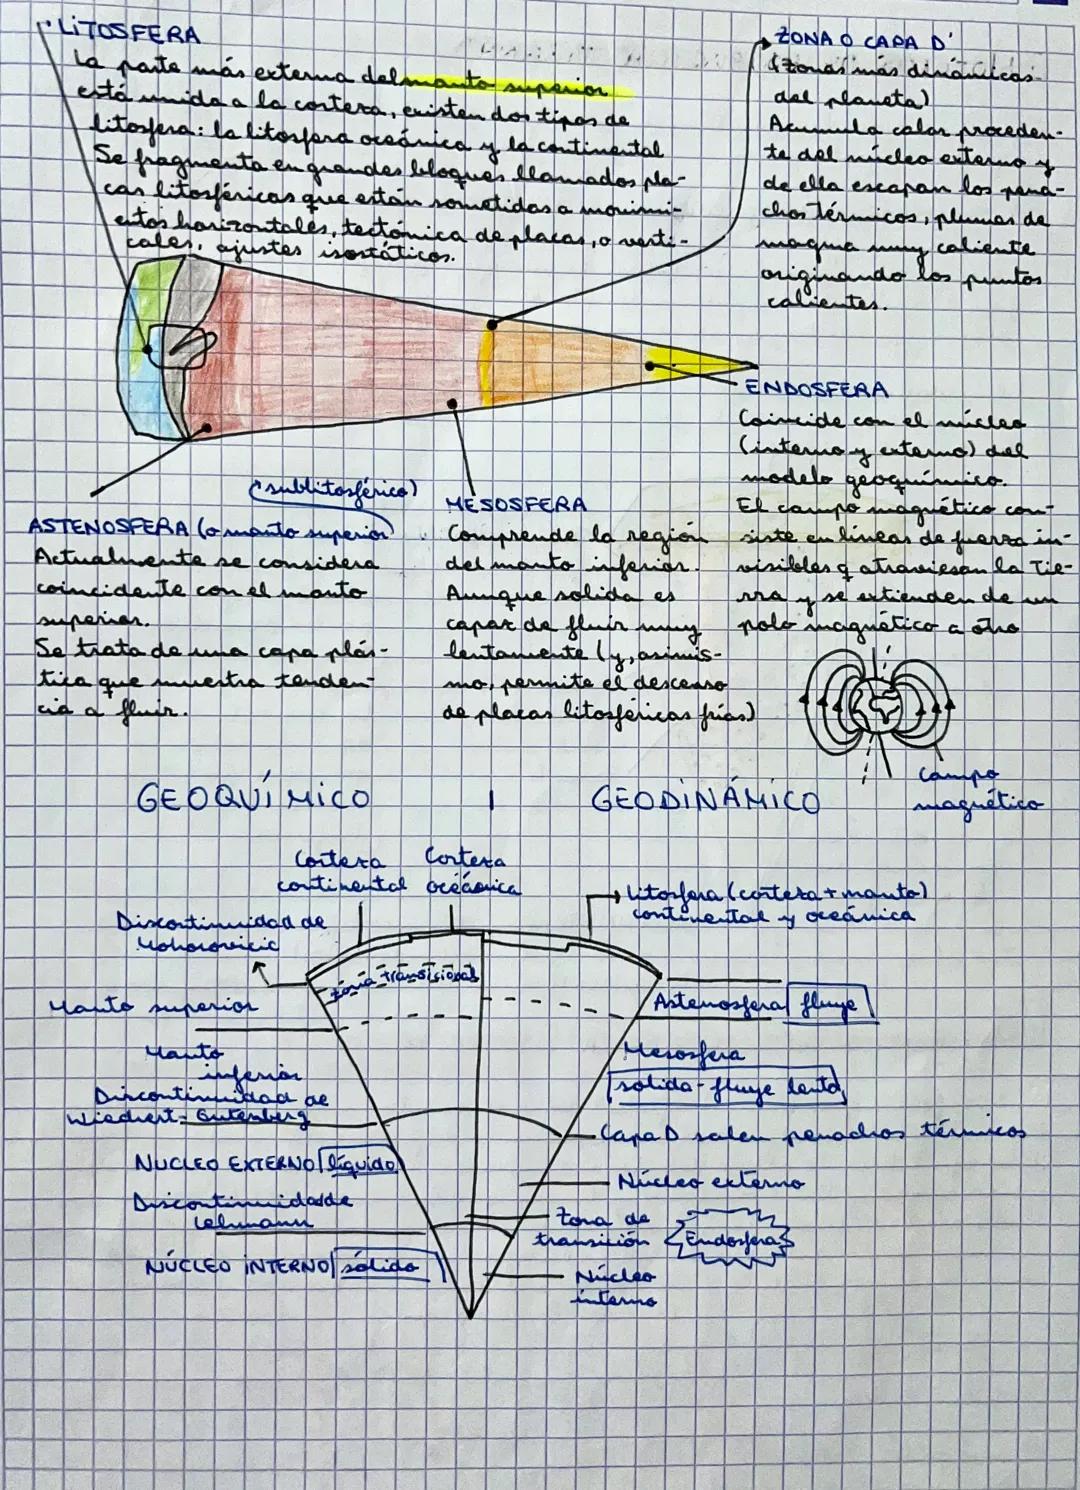 LITOSFERA
La parte más externa del manto superior
está unida a la corteza, existen dos tipos de
litosfera: la litosfera oceánica y la continental
Se fragmenta en grandes bloques llamados pla-
cas litosféricas que están sometidas a movimi-
entos horizontales, tectónica de placas, o verti-
cales, ajustes isostáticos.
ZONA O CAPA D'
(zonas más dinámicas
del planeta)
Acumula calor proceden-
te del núcleo externo y
de ella escapan los pena-
chos térmicos, plumas de
magma muy caliente
originando los puntos
calientes.
ENDOSFERA
Coincide con el núcleo
(interno y externo) del
modelo geoquímico.
El campo magnético con-
siste en líneas de fuerza in-
visibles q atraviesan la Tie-
rra y se extienden de un
polo magnético a otro
campo
magnético
(sublitosférico)
ASTENOSFERA (o manto superior)
Actualmente se considera
coincidente con el manto
superior.
Se trata de una capa plás-
tica que muestra tenden-
cia a fluir.
MESOSFERA
Comprende la región
del manto inferior.
Aunque solida es
capaz de fluir muy
lentamente (y, asimis-
mo, permite el descenso
de placas litosféricas frías)
GEOQUÍMICO | GEODINÁMICO
Corteza
continental
Corteza
oceánica
Discontinuidad de
Mohorovicic
zona transicional
Manto superior
Manto
inferior
Discontinuidad de
Wiechert-Gutenberg
NUCLEO EXTERNO líquido
Discontinuidad de
Lehmann
NÚCLEO INTERNO sólido
Litosfera (corteza + manto)
continental y oceánica
Astenosfera fluye
Mesosfera
solida-fluye lenta
Capa D salen penachos térmicos
Núcleo externo
Zona de
transición
Endosfera
Núcleo
interno